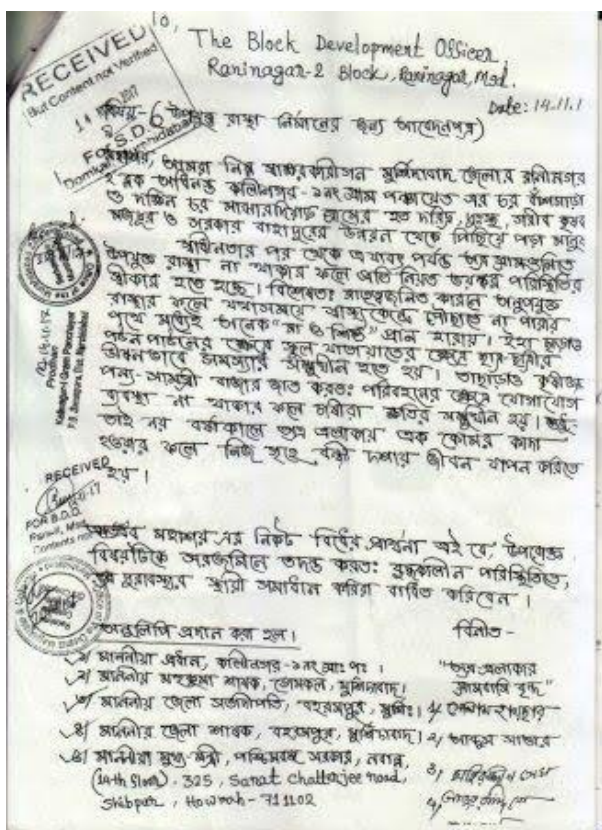 To,
The Block Development Officer,
Raninagar-2 Block, Raninagar, Msd.
Date: 14.11.1
RECEIVED
But Content not Verified
বিষয়-উপযুক্ত রাস্তা নির্মানের জন্য আবেদনপত্র)
মহাশয়, আমরা নিম্ন স্বাক্ষরকারীগন মুর্শিদাবাদ জেলার রানীনগর
২ ব্লক অধিনস্ত কালীনগর-১নং গ্রাম পঞ্চায়েত এর চর বাঁশগাড়া
ও দক্ষিন চর মাঝারদিয়াড় গ্রামের হত দরিদ্র, দুঃস্থ, গরীব কৃষক
মজুর ও সরকার বাহাদুরের উন্নয়ন থেকে পিছিয়ে পড়া মানুষ
স্বাধীনতার পর থেকে এ যাবৎ পর্যন্ত অত্র গ্রামগুলিতে
উপযুক্ত রাস্তা না থাকার ফলে প্রতি নিয়ত ভয়ঙ্কর পরিস্থিতির
স্বীকার হতে হচ্ছে। বিশেষতঃ কারনে অনুপযুক্ত
রাস্তার ফলে যথাসময়ে স্বাস্থ্যকেন্দ্রে পৌঁছাতে না পারার
পথে মধ্যেই অনেক "মা ও শিশু" প্রান হারায়। ইহা ছাড়াও
পঠন পাঠনের ক্ষেত্রে স্কুল যাতায়াতের ক্ষেত্রে ছাত্র-ছাত্রীর
ভীষনভাবে সমস্যার সম্মুখীন হতে হয়। তাছাড়াও কৃষিজ
পন্য-সামগ্রী বাজার জাত করতঃ পরিবহনের ক্ষেত্রে যোগাযোগ
ব্যবস্থা না থাকার ফলে চাষীরা ক্ষতির সম্মুখীন হয়। শুধু
তাই নয় বর্ষাকালে অত্র এলাকায় এক কোমর কাদা
হওয়ার ফলে নিজ গৃহে বন্দী দশায় জীবন যাপন করিতে
হয়।
RECEIVED
FOR B.D.O.
অতএব মহাশয় এর নিকট বিশেষ প্রার্থনা এই যে, উপরোক্ত
বিষয়টিকে সরজমিনে তদন্ত করতঃ যুদ্ধকালীন পরিস্থিতিতে,
দুরাবস্থার স্থায়ী সমাধান করিয়া বাধিত করিবেন।
অনুলিপি প্রদান করা হল।
বিনীত-
১) মাননীয়া প্রধান, কালীনগর-১নং গ্রাঃ পঃ।
২) মাননীয় মহকুমা শাসক, ডোমকল, মুর্শিদাবাদ।
৩) মাননীয় জেলা সভাধিপতি, বহরমপুর, মুর্শিঃ।
৪) মাননীয় জেলা শাসক, বহরমপুর, মুর্শিদাবাদ।
৫) মাননীয়া মুখ্য-মন্ত্রী, পশ্চিমবঙ্গ সরকার, নবান্ন,
(14th floor). 325, Sarat Chatterjee road,
Shibpur, Howrah-711102
"অত্র এলাকার
গ্রামবাসি বৃন্দ"